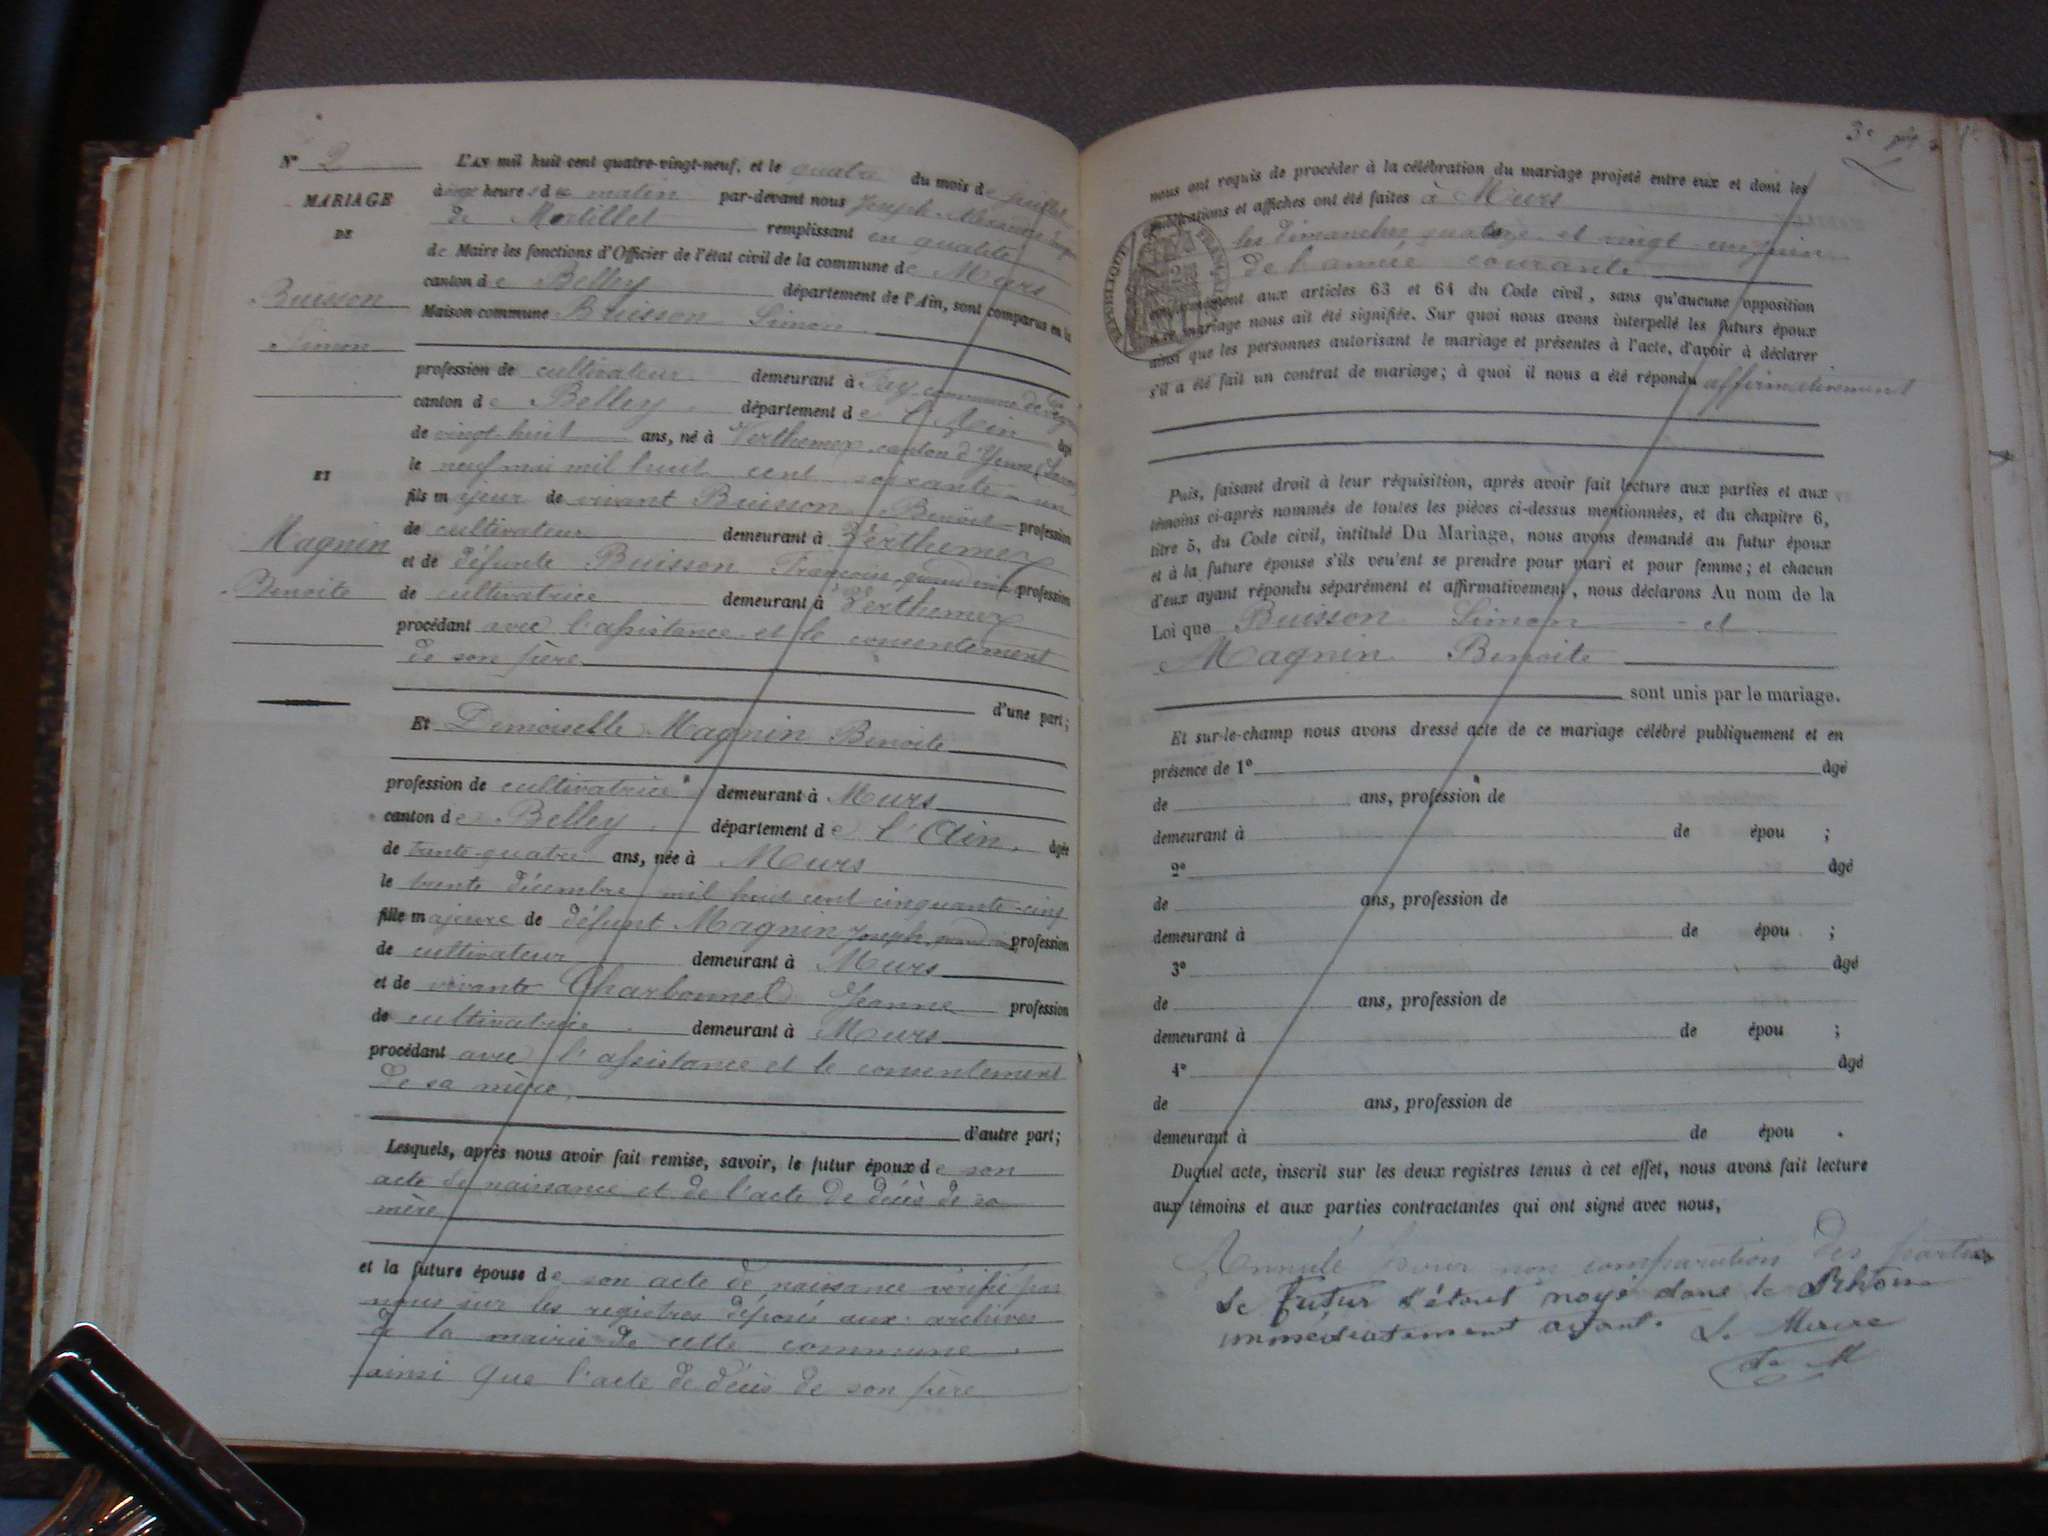 N° 2
MARIAGE
DE
Buisson
Simon
ET
Magnin
Benoite
L'AN mil huit cent quatre-vingt-neuf, et le quatre du mois de juillet
à onze heures du matin par-devant nous Joseph
de Mortillet remplissant en qualité
de Maire les fonctions d'Officier de l'état civil de la commune de Murs
canton de Belley département de l'Ain, sont comparus en la
Maison commune Buisson Simon
profession de cultivateur demeurant à Fay commune de
canton de Belley département de l'Ain âgé
de vingt-huit ans, né à Verthemex canton d'Yenne (Savoie)
le neuf mai mil huit cent soixante-un
fils majeur de vivant Buisson Benoit profession
de cultivateur demeurant à Verthemex
et de défunte Buisson Françoise, quand vivait profession
de cultivatrice demeurant à Verthemex
procédant avec l'assistance et le consentement
de son père
d'une part;
Et Demoiselle Magnin Benoite
profession de cultivatrice demeurant à Murs
canton de Belley département de l'Ain, âgée
de trente-quatre ans, née à Murs
le trente décembre mil huit cent cinquante-cinq
fille majeure de défunt Magnin Joseph, quand vivait profession
de cultivateur demeurant à Murs
et de vivante Charbonnel Jeanne profession
de cultivatrice demeurant à Murs
procédant avec l'assistance et le consentement
de sa mère,
d'autre part;
Lesquels, après nous avoir fait remise, savoir, le futur époux de son
acte de naissance et de l'acte de décès de sa
mère
et la future épouse de son acte de naissance vérifié par
nous sur les registres déposés aux archives
à la mairie de cette commune
ainsi que l'acte de décès de son père
3e
nous ont requis de procéder à la célébration du mariage projeté entre eux et dont les
publications et affiches ont été faites à Murs
les dimanches quatorze et vingt un juin
de l'année courante
RÉPUBLIQUE FRANÇAISE
conformément aux articles 63 et 64 du Code civil, sans qu'aucune opposition
à ce mariage nous ait été signifiée. Sur quoi nous avons interpellé les futurs époux
ainsi que les personnes autorisant le mariage et présentes à l'acte, d'avoir à déclarer
s'il a été fait un contrat de mariage; à quoi il nous a été répondu affirmativement
Puis, faisant droit à leur réquisition, après avoir fait lecture aux parties et aux
témoins ci-après nommés de toutes les pièces ci-dessus mentionnées, et du chapitre 6,
titre 5, du Code civil, intitulé Du Mariage, nous avons demandé au futur époux
et à la future épouse s'ils veu'ent se prendre pour mari et pour femme; et chacun
d'eux ayant répondu séparément et affirmativement, nous déclarons Au nom de la
Loi que Buisson Simon et
Magnin Benoite
sont unis par le mariage.
Et sur-le-champ nous avons dressé acte de ce mariage célébré publiquement et en
présence de 1° âgé
de ans, profession de
demeurant à de épou ;
2° âgé
de ans, profession de
demeurant à de épou ;
3° âgé
de ans, profession de
demeurant à de épou ;
4° âgé
de ans, profession de
demeurant à de épou .
Duquel acte, inscrit sur les deux registres tenus à cet effet, nous avons fait lecture
aux témoins et aux parties contractantes qui ont signé avec nous,
Annulé pour non comparution des parties
Le futur s'étant noyé dans le Rhône
immédiatement avant. Le Maire
de M